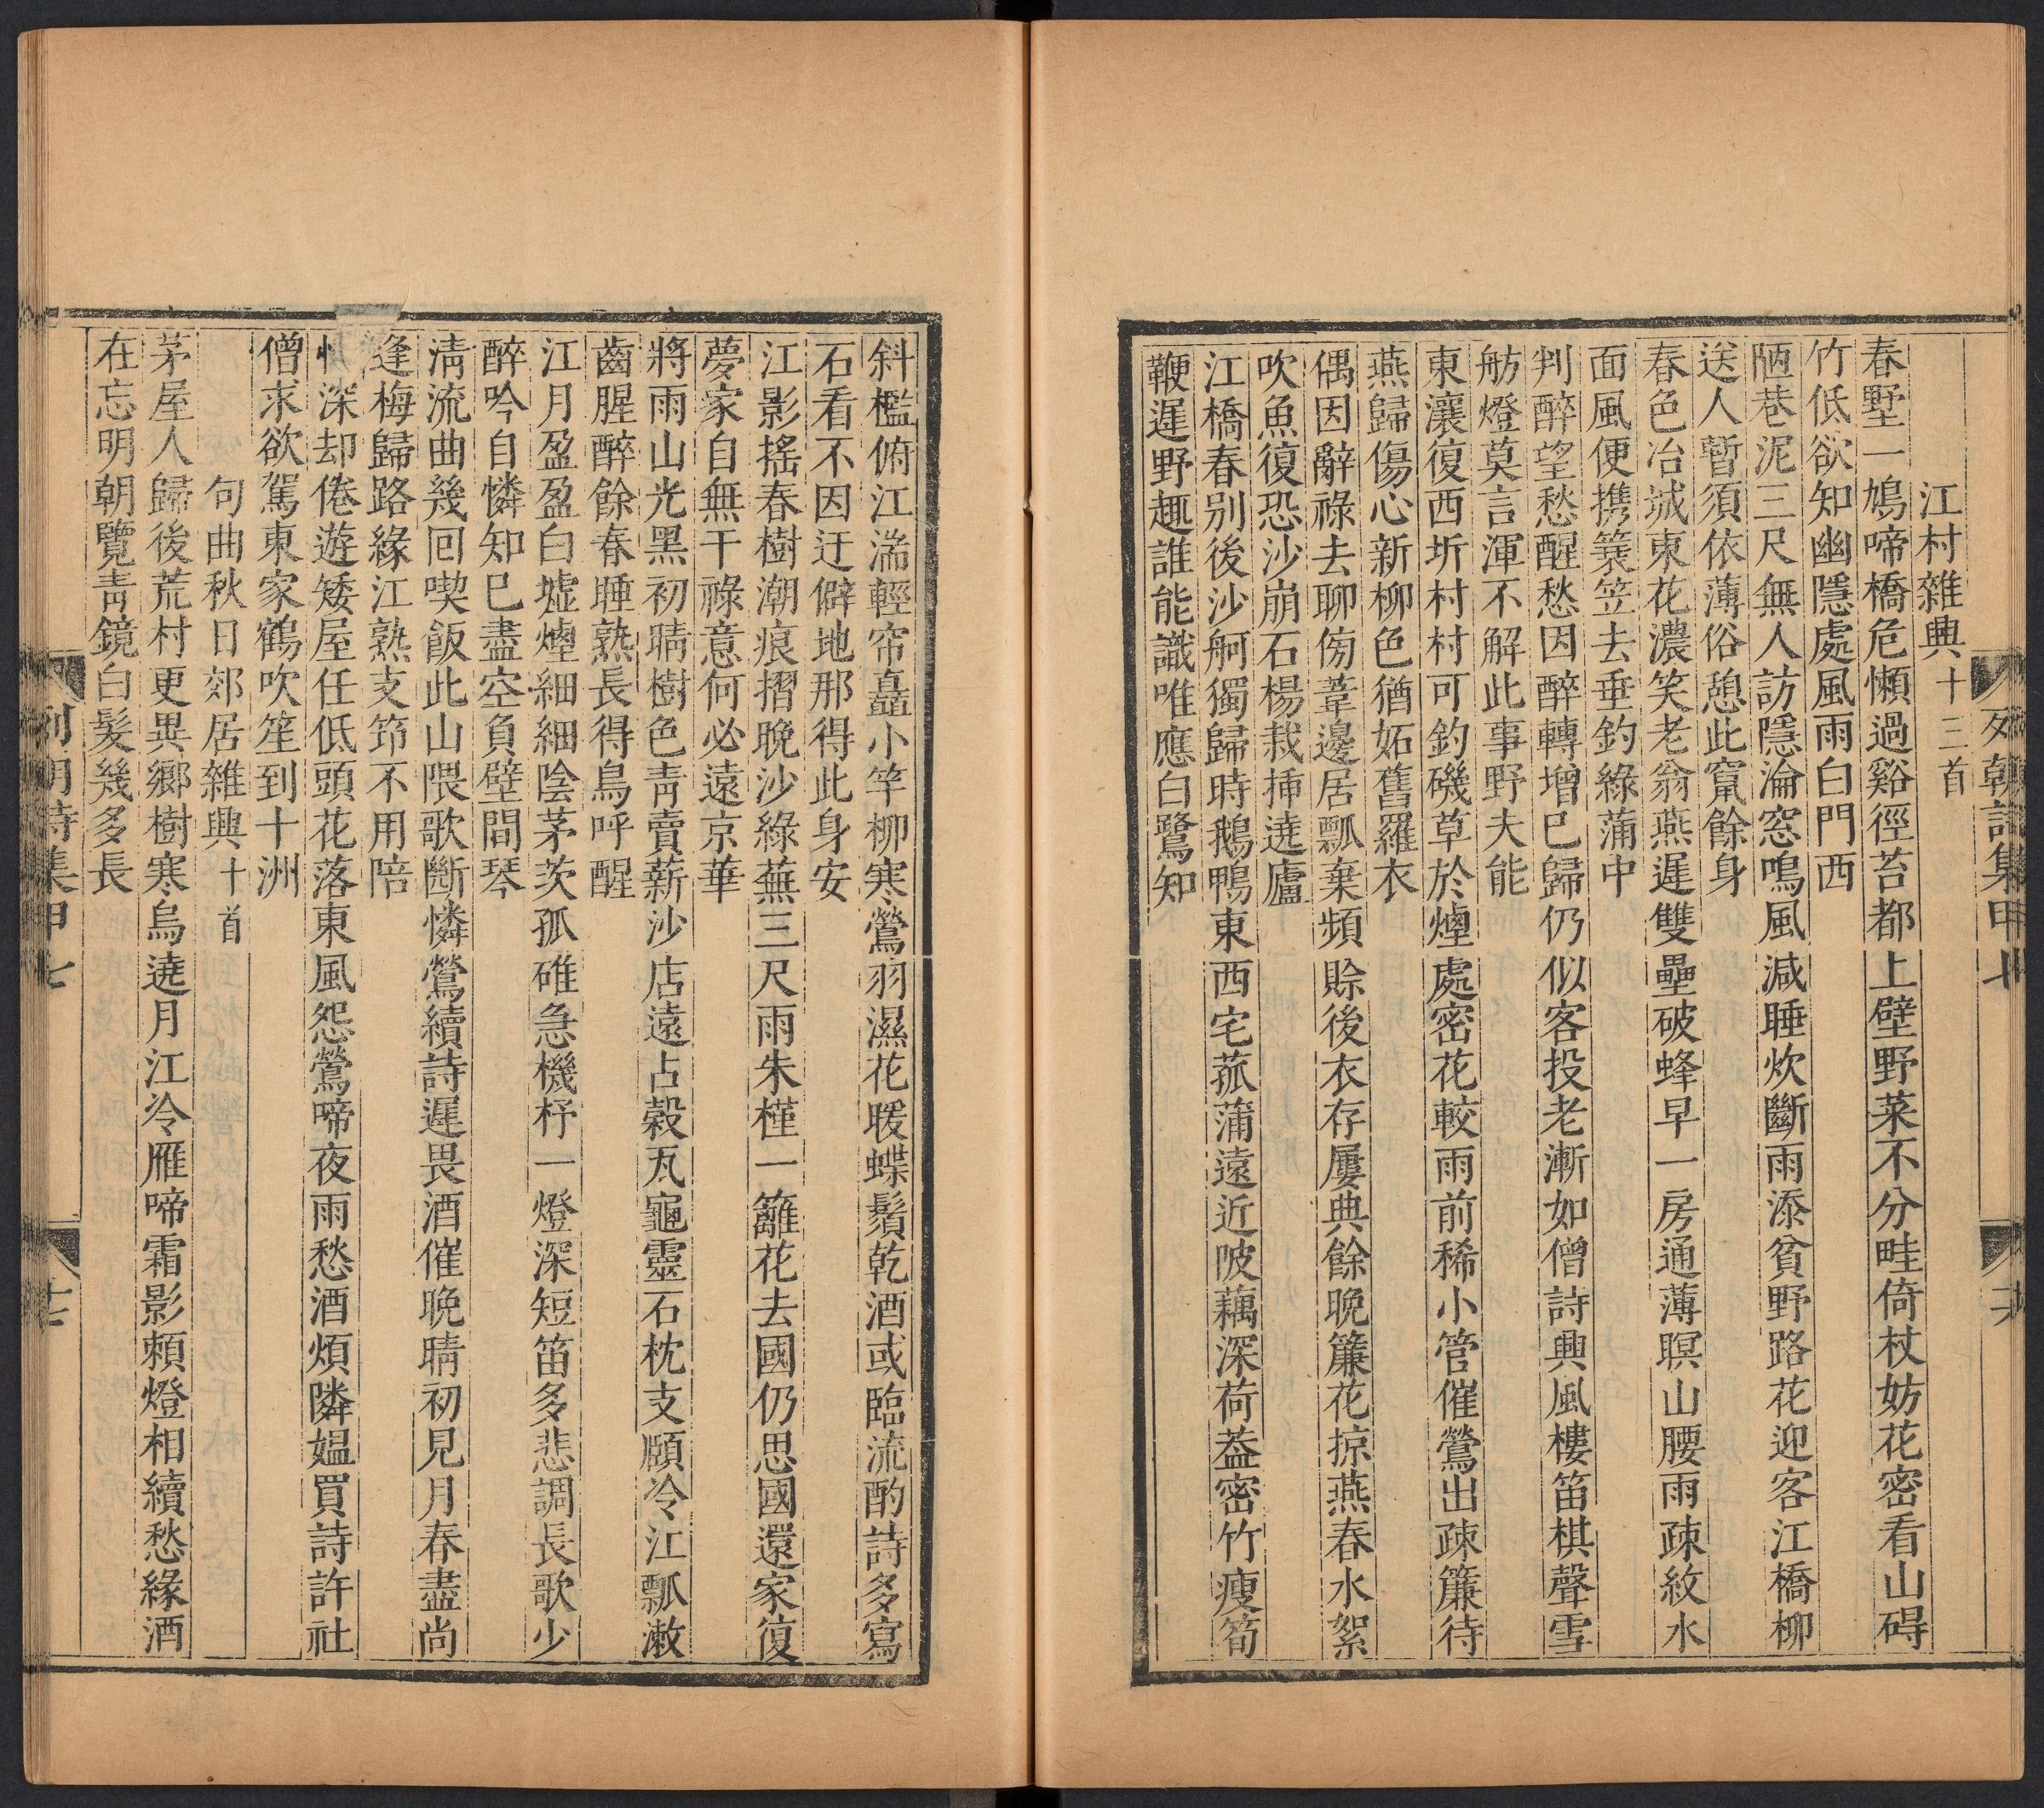 列朝詩集甲七
江村雜興十三首
春墅一鳩啼橋危懶過谿徑苔都上壁野菜不分畦倚杖妨花密看山碍
竹低欲知幽隱處風雨白門西
陋巷泥三尺無人訪隱淪窓鳴風減睡炊斷雨添貧野路花迎客江橋柳
送人暫須依薄俗憩此竄餘身
春色冶城東花濃笑老翁燕遲雙壘破蜂早一房通薄暝山腰雨疎紋水
面風便携簔笠去垂釣綠蒲中
判醉望愁醒愁因醉轉增巳歸仍似客投老漸如僧詩興風樓笛棋聲雪
舫燈莫言渾不解此事野夫能
東瀼復西圻村村可釣磯草於煙處密花較雨前稀小管催鶯出疎簾待
燕歸傷心新柳色猶妬舊羅衣
偶因辭祿去聊傍葦邊居瓢棄頻賒後衣存屢典餘晚簾花掠燕春水絮
吹魚復恐沙崩石楊栽揷遶廬
江橋春别後沙舸獨歸時鵝鴨東西宅菰蒲遠近陂藕深荷葢密竹瘦筍
鞭遲野趣誰能識唯應白鷺知
斜檻俯江湍輕帘矗小竿柳寒鶯羽濕花暖蝶鬚乾酒或臨流酌詩多寫
石看不因迂僻地那得此身安
江影搖春樹潮痕摺晚沙綠蕪三尺雨朱槿一籬花去國仍思國還家復
夢家自無干祿意何必遠京華
將雨山光黑初晴樹色靑賣薪沙店遠占糓瓦龜靈石枕支頤冷江瓢漱
齒腥醉餘春睡熟長得鳥呼醒
江月盈盈白墟煙細細陰茅茨孤碓急機杼一燈深短笛多悲調長歌少
醉吟自憐知巳盡空負壁間琴
淸流曲幾囘喫飯此山隈歌斷憐鶯續詩遲畏酒催晩晴初見月春盡尚
逢梅歸路緣江熟支笻不用陪
深却倦遊矮屋任低頭花落東風怨鶯啼夜雨愁酒煩隣媼買詩許社
僧求欲駕東家鶴吹笙到十洲
句曲秋日郊居雜興十首
茅屋人歸後荒村更異鄉樹寒烏遶月江冷雁啼霜影頼燈相續愁緣酒
在忘明朝覽靑鏡白髮幾多長
列朝詩集甲七